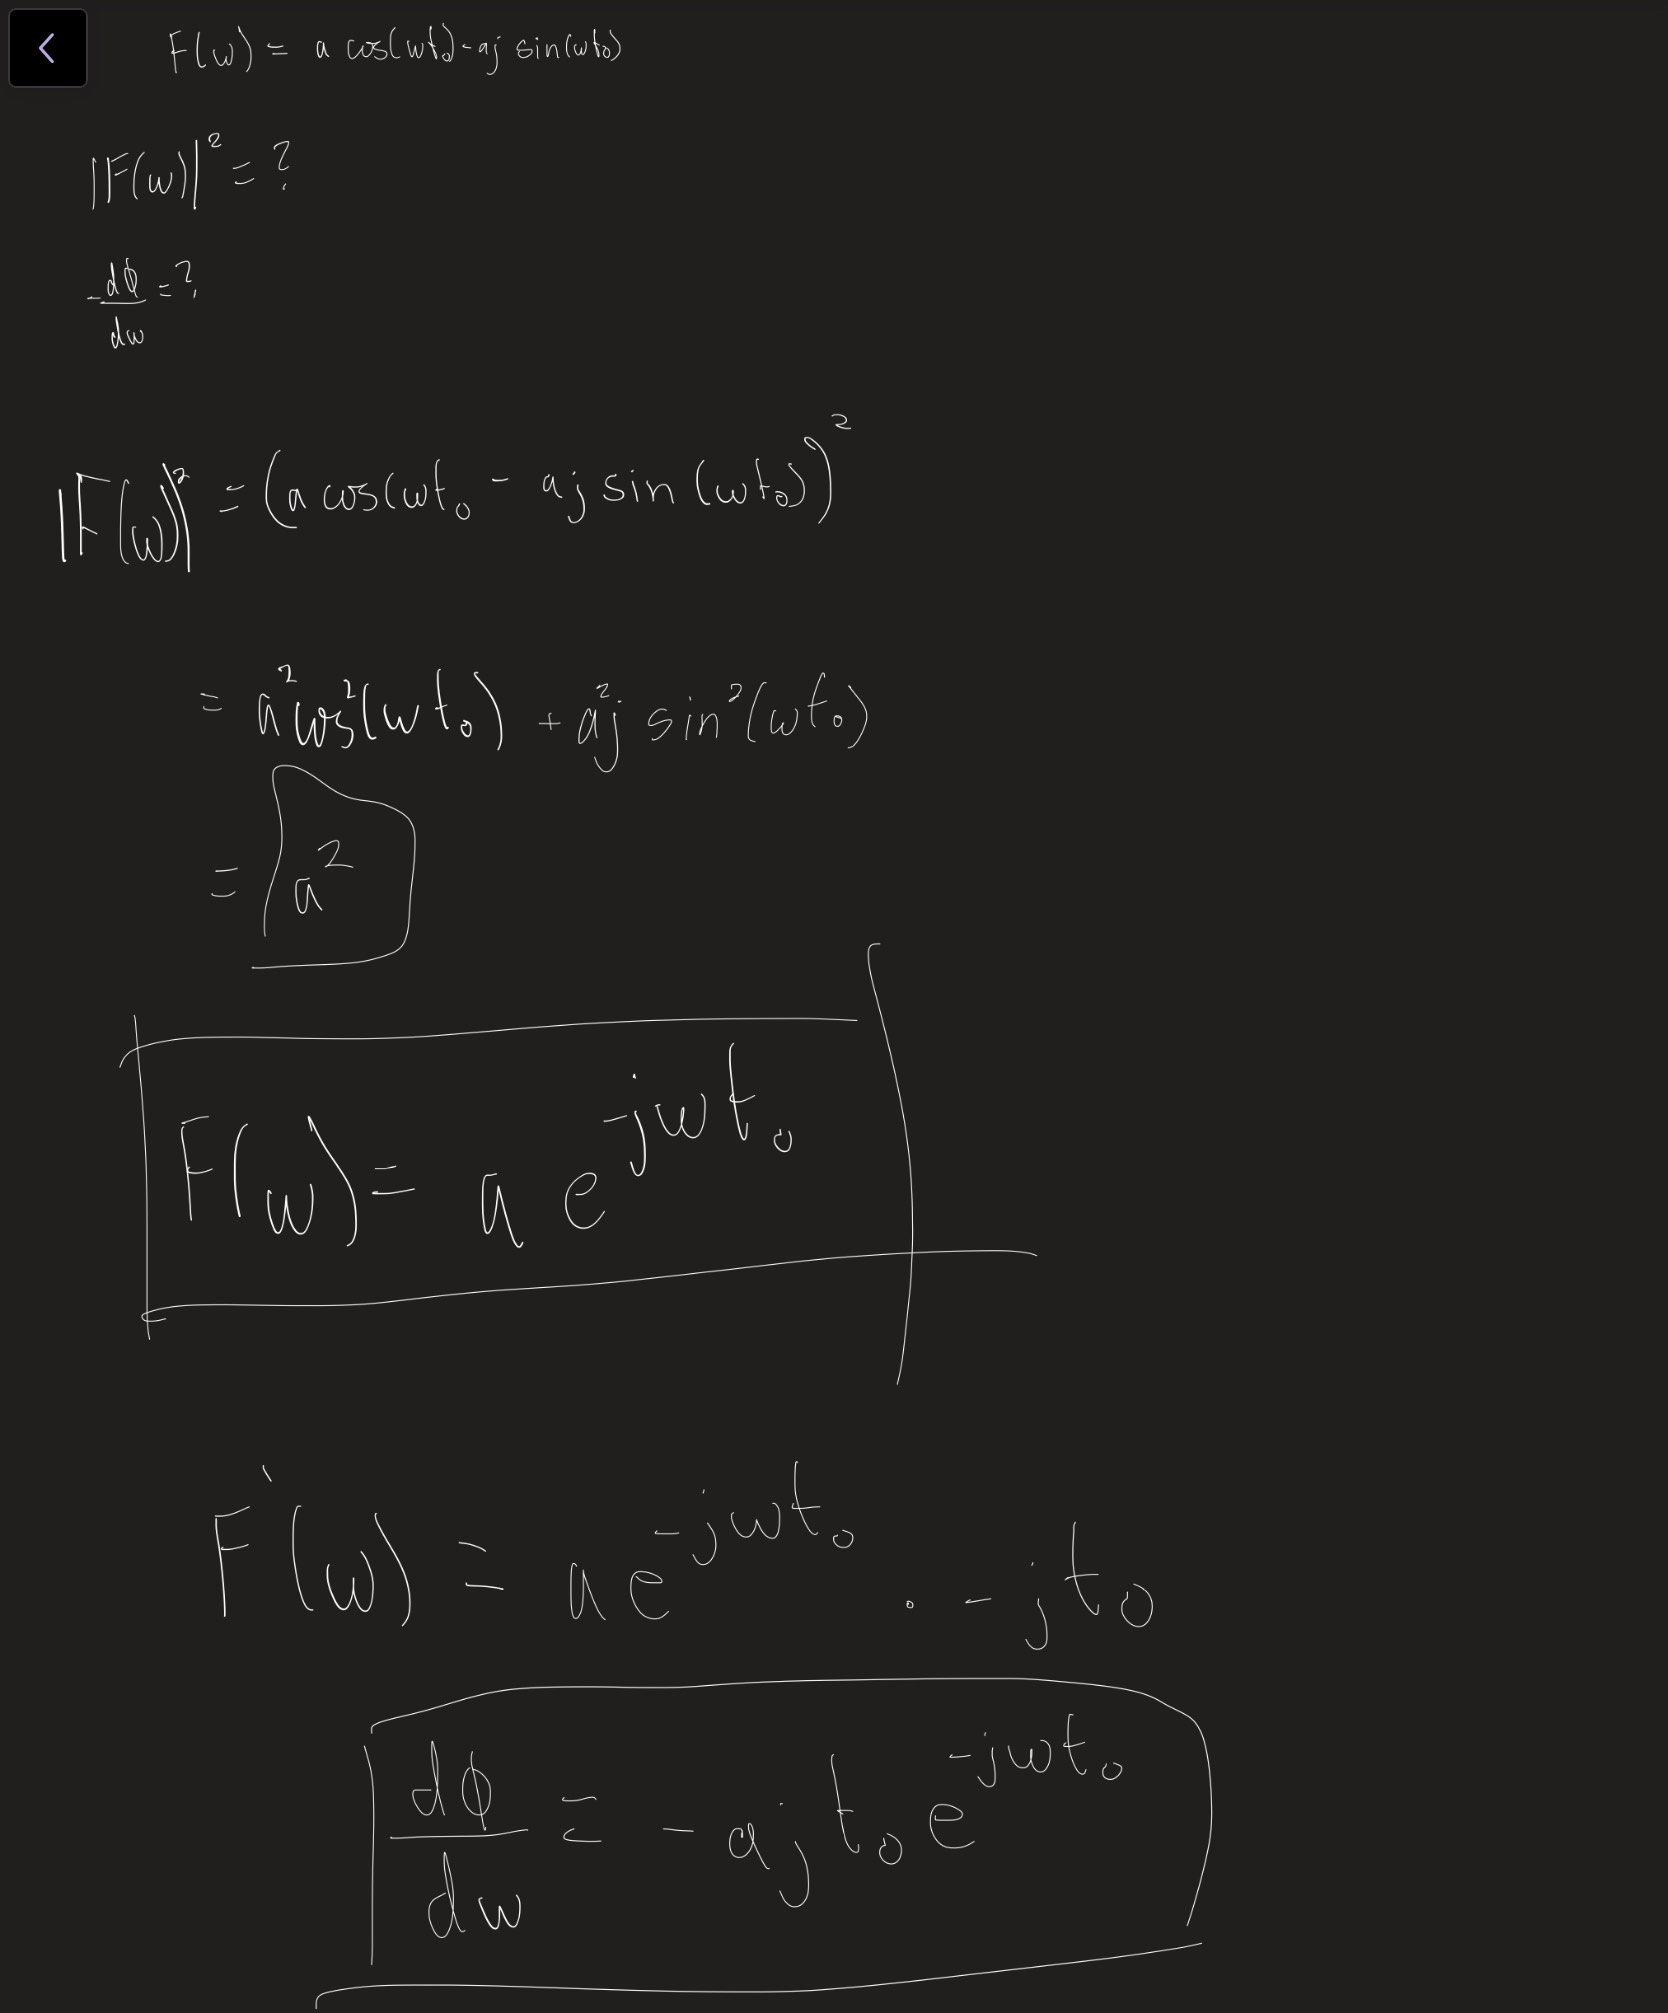 F(ω) = a cos(ωt₀) - aj sin(ωt₀)
|F(ω)|² = ?
-dφ/dω = ?
|F(ω)|² = (a cos(ωt₀ - aj sin(ωt₀))²
= a²cos²(ωt₀) + a²j sin²(ωt₀)
= a²
F(ω) = a e^-jωt₀
F'(ω) = a e^-jωt₀ · -jt₀
dφ/dω = -ajt₀e^-jωt₀